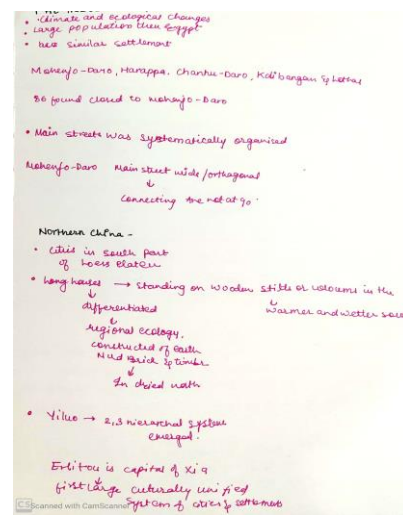 • Climate and ecological changes
• Large population then Egypt
• two similar settlement
Mohenjo-Daro, Harappa, Chanhu-Daro, Kalibangan & Lothal
80 found closed to Mohenjo-Daro
• Main streets was systematically organised
Mohenjo-Daro Main street wide/orthagonal
↓
connecting one not at 90°
Northern China -
• Cities in south part
of Loess
• Long houses → standing on wooden stilts or coloums in the
↓ ↓
differentiated warmer and wetter
↓
regional ecology.
constructed of earth
Mud Brick & timber
↓
In dried north
• Yiluo → 2,3 hierarchal system
emerged.
Erlitou is capital of Xia
first large culturally unified
system of cities & settlements
CS Scanned with CamScanner